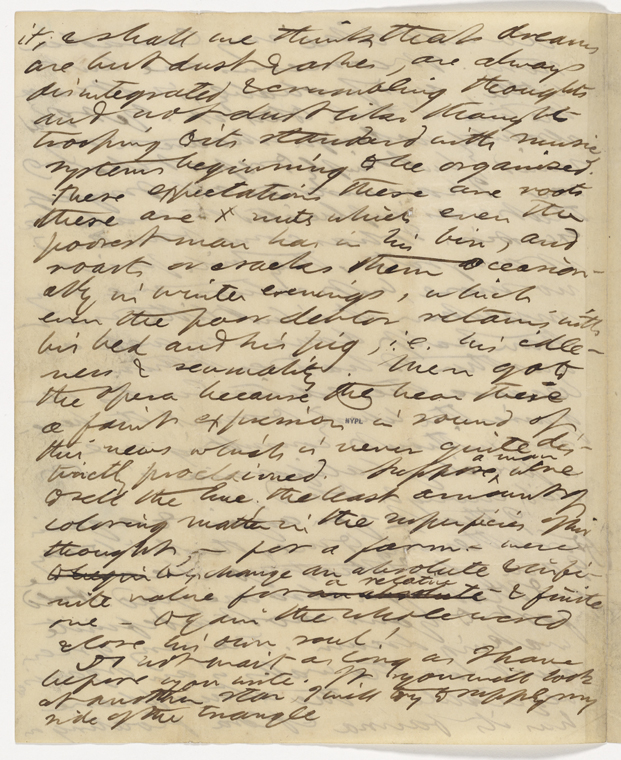 it; & shall we think that dreams
are but dust & ashes, are always
disintegrated & crumbling thoughts
and not dust like thought
trooping to its standard with music
systems beginning to be organized.
These expectations these are roots
these are x nuts which even the
poorest man has in his bin, and
roasts or cracks them occasion-
ally in winter evenings, which
even the poor debtor retains with
his bed and his pig, i.e. his idle-
ness & sensuality. Men go to
the opera because they hear there
a faint expression in sound of
NYPL
this news which is never quite dis-
tinctly proclaimed. Suppose a man were
to sell the hue, the least amount of
coloring matter in the superficies of his
thought, — for a farm — were
to begin to exchange an absolute & infi-
nite value for an absolute a relative & finite
one — to gain the whole world
& lose his own soul!
Do not wait as long as I have
before you write. If you will look
at another star I will try to supply my
side of the triangle